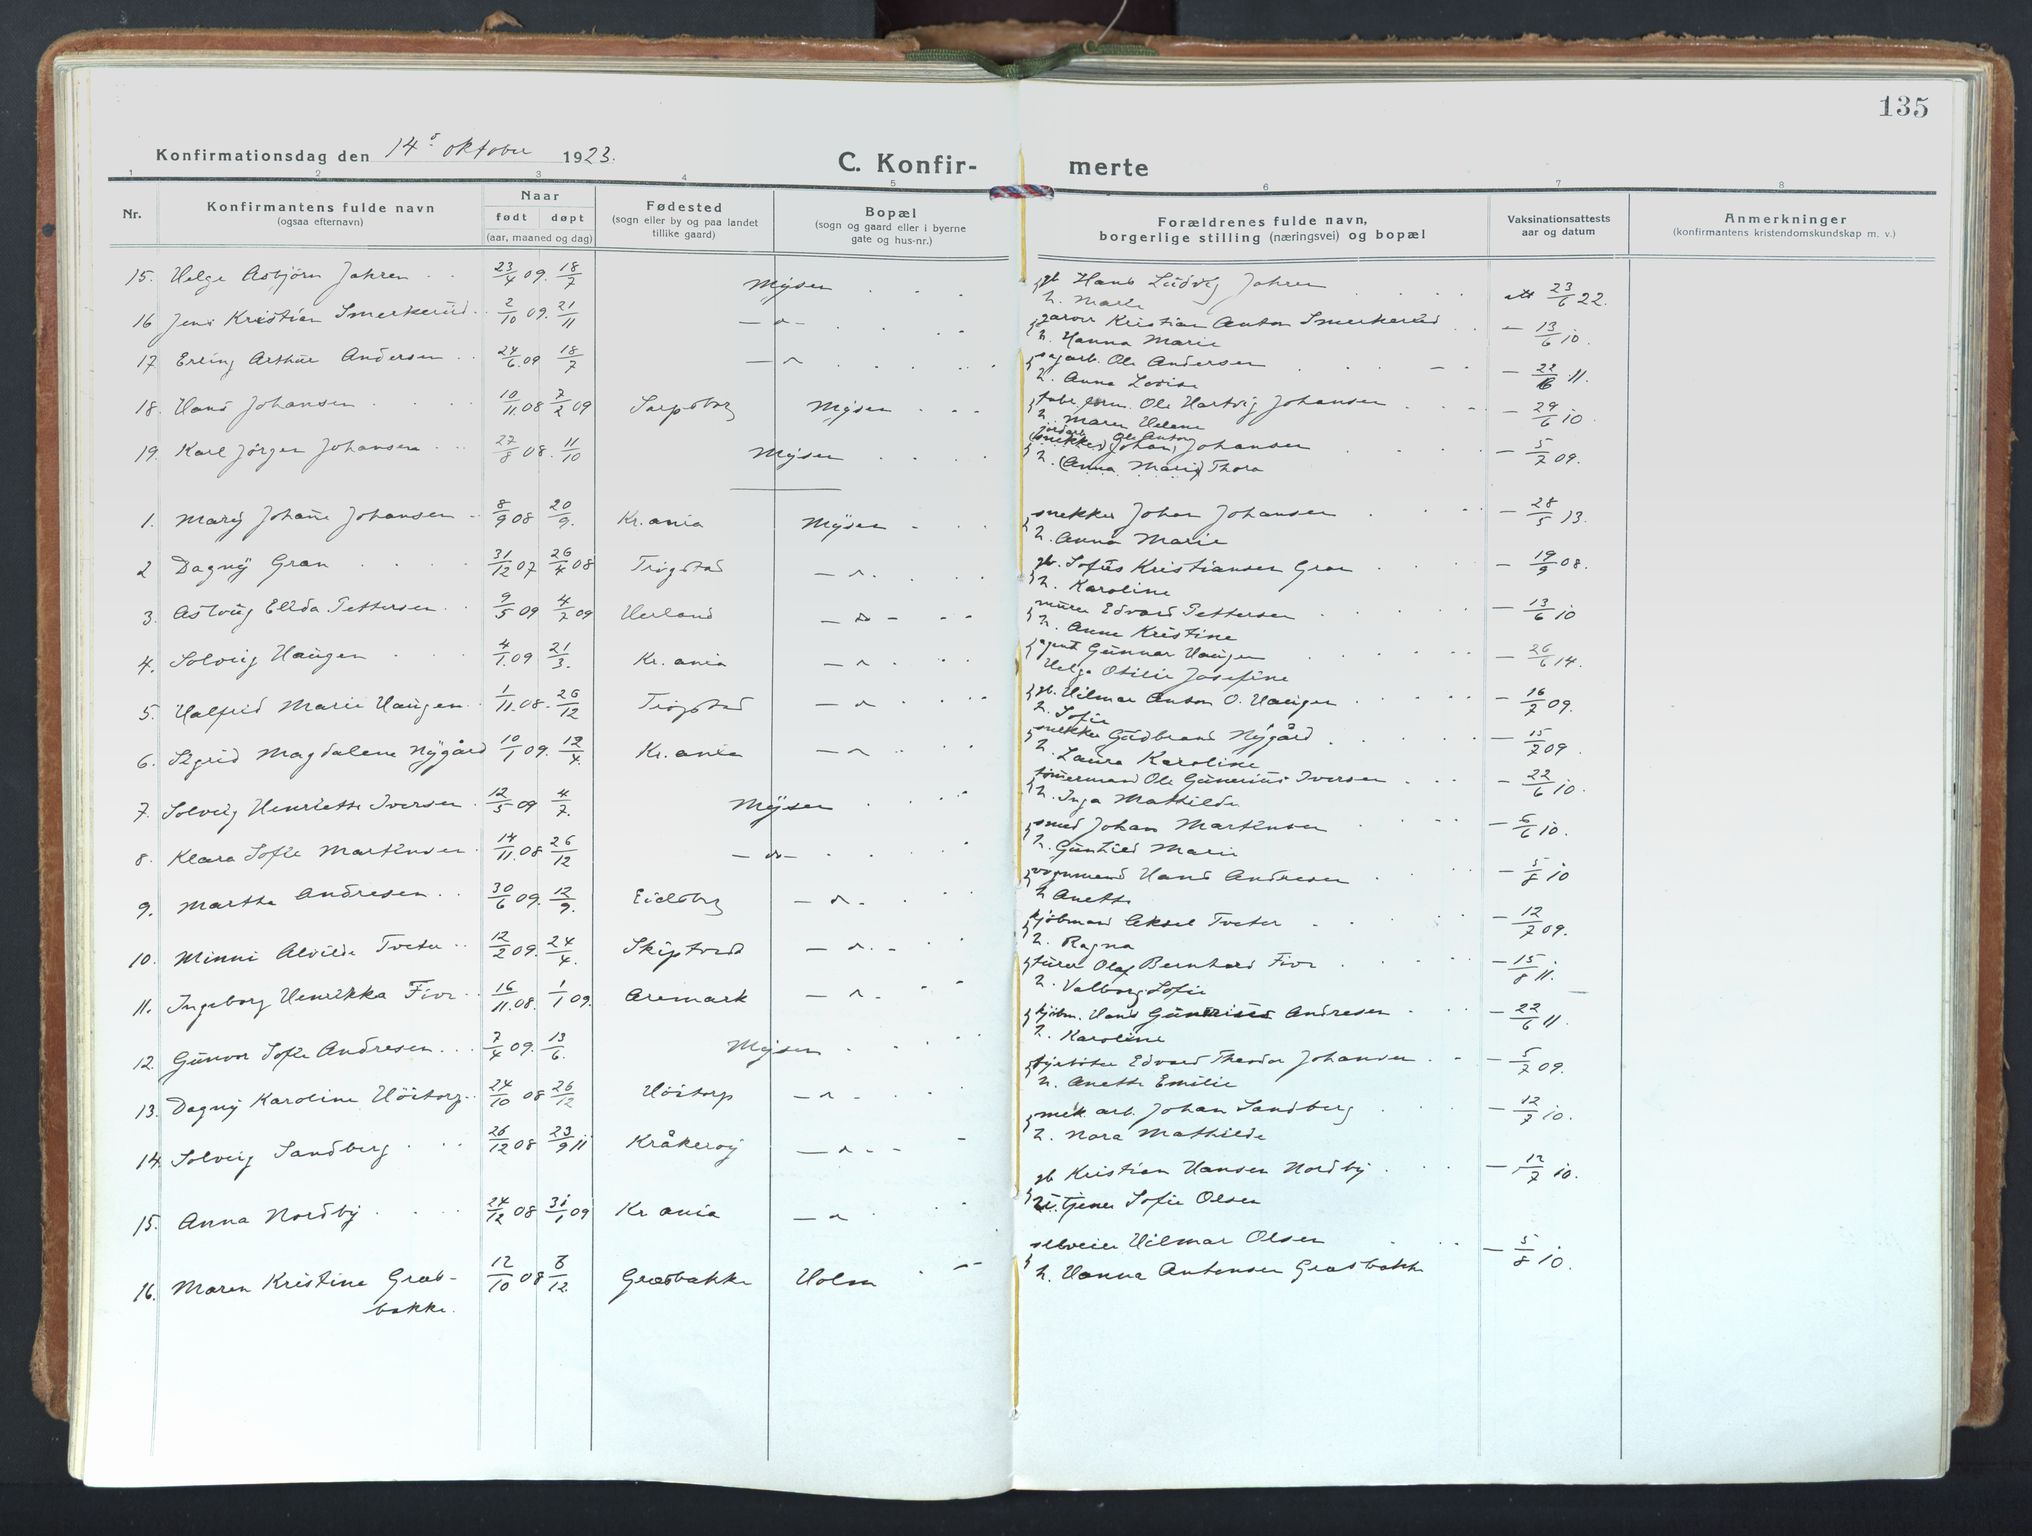 135
Konfirmationsdag den 14de oktober 1923.
C. Konfir- merte
1 2 3 4 5 6 7 8
Nr.
Konfirmantens fulde navn
(ogsaa efternavn)
Naar
født døpt
(aar, maaned og dag)
Fødested
(sogn eller by og paa landet
tillike gaard)
Bopæl
(sogn og gaard eller i byerne
gate og hus-nr.)
Forældrenes fulde navn,
borgerlige stilling (næringsvei) og bopæl
Vaksinationsattests
aar og datum
Anmerkninger
(konfirmantens kristendomskundskap m. v.)
15. Helge Asbjørn Jahren 23/4 09. 18/7 Mysen gb Hans Ludvig Jahren att 23/6 22.
h. Marte
16 Jens Kristian Smerkerud 2/10 09. 21/11 — " — Kristian Anton Smerkerud — 13/6 10.
h. Hanna Marie
17 Erling Arthur Andersen 24/6 09 18/7 — " sagarb. Ole Andersen — 22/6 11.
h. Anna Lovise
18. Hans Johansen 10/11 08 7/2 09 Sarpsborg Mysen Ole Hartvig Johansen — 29/6 10.
h. Maren Helene
19. Karl Jörgen Johansen 27/8 08. 11/10 Mysen jordarb. Ole Anton
(snekker Johan) Johansen — 5/7 09.
h. (Anna Marie) Thora
1. Mary Johane Johansen 8/9 08 20/9. Kr.ania Mysen snekker Johan Johansen — 28/5 13.
h. Anna Marie
2 Dagny Gran 31/12 07 26/4 08 Trøgstad — " — gb. Sofus Kristiansen Gran — 19/9 08.
h. Karoline
3. Aslaug Ellda Pettersen 9/5 09 4/7 09 Herland — " — murer Edvard Pettersen — 13/6 10
h. Anne Kristine
4. Solveig Haugen 4/1 09 21/3. Kr.ania — " — agent Gunnar Haugen — 26/6 14.
Helga Otilie Josefine
5. Halfrid Marie Haugen 1/11 08. 26/12 Trøgstad — " — gb. Hilmar Anton O. Haugen — 16/7 09.
h. Sofie
6. Sigrid Magdalene Nygård 10/1 09. 12/4. Kr.ania — " snekker Gudbrand Nygård — 15/7 09
h. Laura Karoline
7. Solveig Henriette Iversen 12/5 09 4/7. Mysen tömmermand Ole Gunerius Iversen — 22/6 10.
h. Inga Mathilde
8. Klara Sofie Martinsen 14/11 08 26/12 — " — smed Johan Martinsen — 6/6 10.
h. Gunhild Marie
9. Martha Andresen 30/6 09. 12/9. Eidsberg — " — vognmand Hans Andresen — 5/8 10
h Anette
10. Minni Alvilde Tveter 12/2 09. 24/4. Skiptvedt — " — kjøbmand Aksel Tveter — 12/7 09.
h. Ragna
11. Ingeborg Henrikka Five 16/11 08. 1/1 09. Aremark — " — Olaf Bernhard Five — 15/8 11.
h. Valborg Sofie
12. Gunvor Sofie Andresen 7/4 09. 13/6. Mysen kjöbm. Hans Gunerius Andresen — 22/6 11.
h. Karoline
13. Dagny Karoline Höitorp 24/10 08 26/12 Höitorp — " — fyrbøter Edvard Theodor Johansen — 5/7 09.
h. Anette Emilie
14. Solveig Sandberg 26/12 08 23/9 11 Kråkeröy — " — mek. arb. Johan Sandberg — 12/7 10.
h. Nora Mathilde
15. Anna Nordby 24/12 08 31/1 09 Kr ania — " gb Kristian Hansen Nordby — 12/7 10.
tjener Sofie Olsen
16. Maren Kristine Græs- 12/10 08 6/12 Græsbakke Holm selveier Hilmar Olsen — 5/8 10.
bakke.
h. Hanna Antonsen Græsbakke